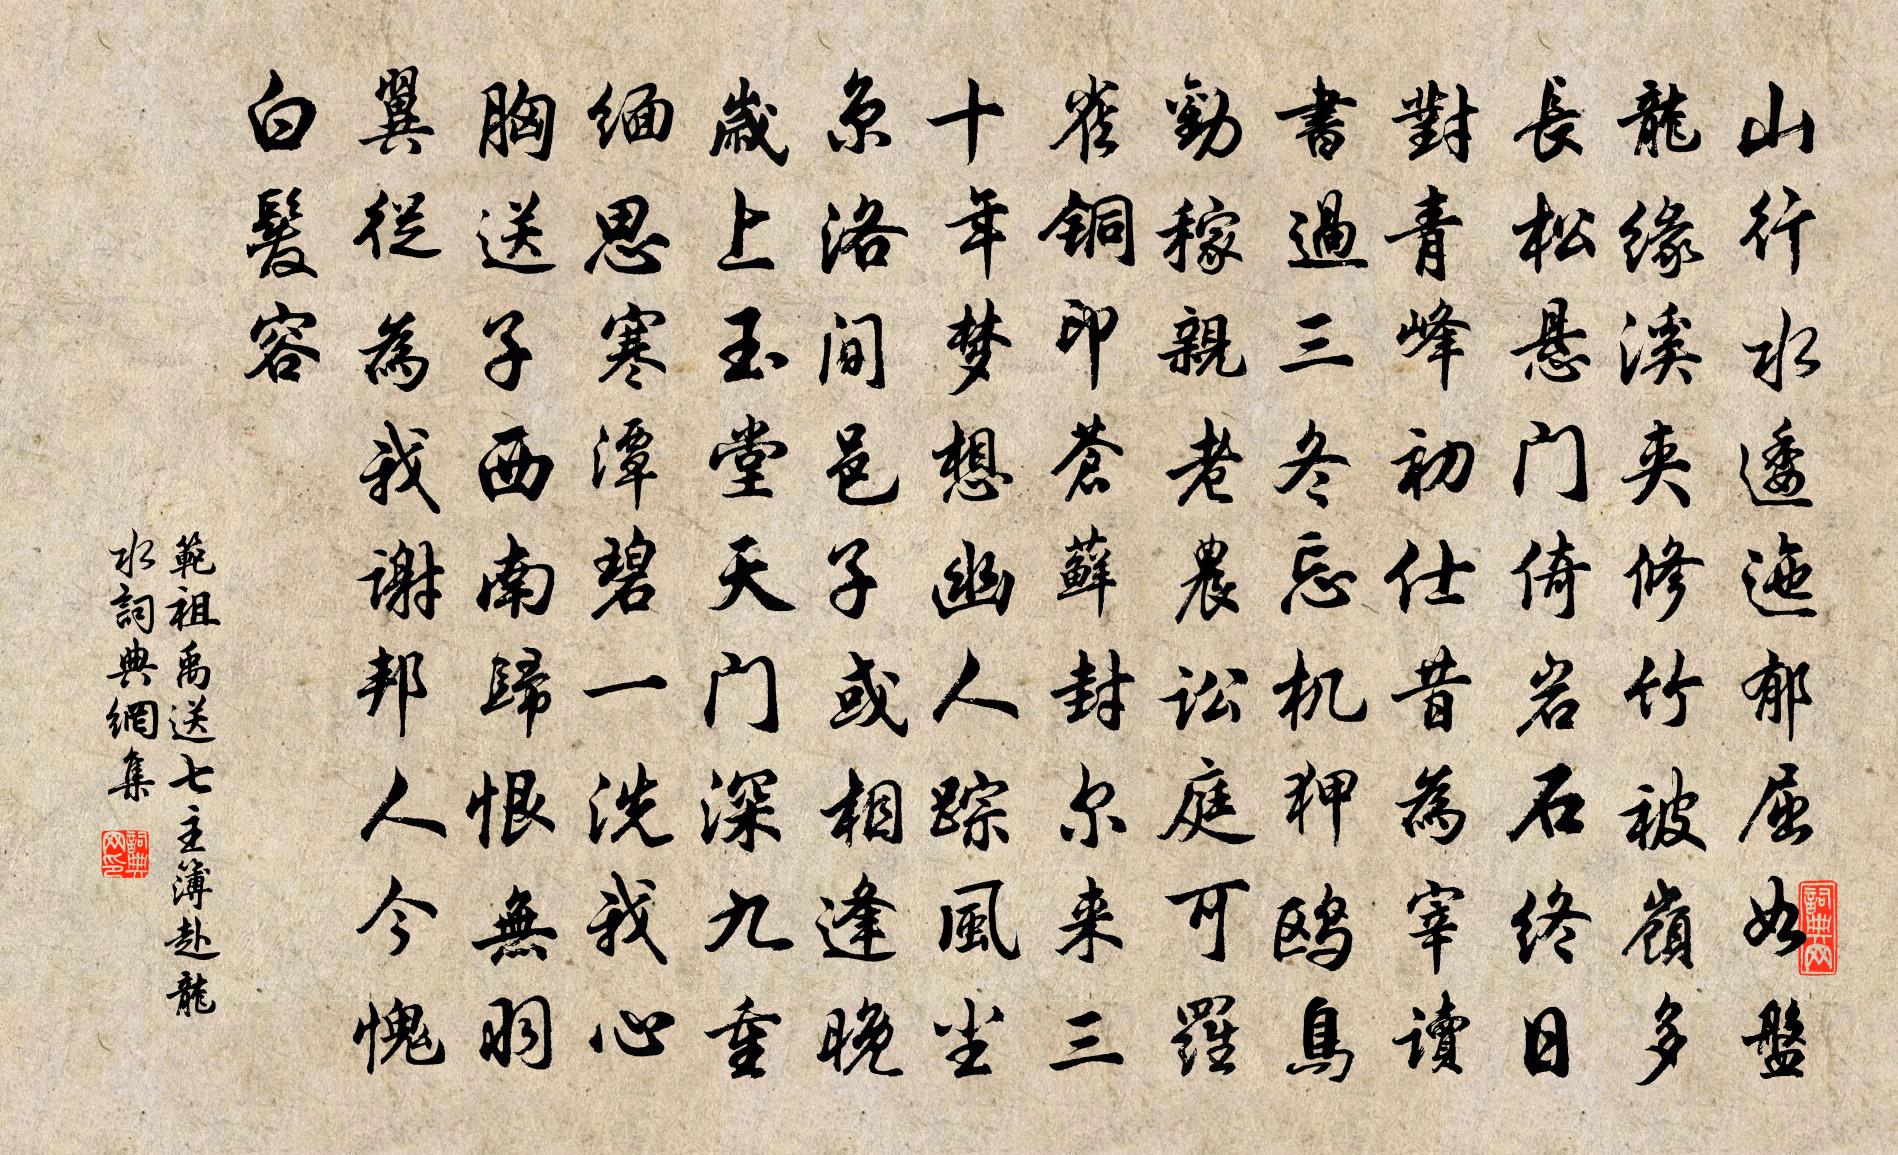 山行水逶迤郁屈如盤
龍緣溪夾修竹被嶺多
長松懸门倚岩石終日
對青峰初仕昔為宰讀
書過三冬忘机狎鸥鳥
勸稼親老農讼庭可羅
雀铜印蒼蘚封尔来三
十年梦想幽人踪風尘
京洛间邑子或相逢晚
歲上玉堂天门深九重
缅思寒潭碧一洗我心
胸送子西南歸恨無羽
翼從為我谢邦人今愧
白髮容
範祖禹送七主簿赴龍
水詞典網集
詞典网
詞典网印